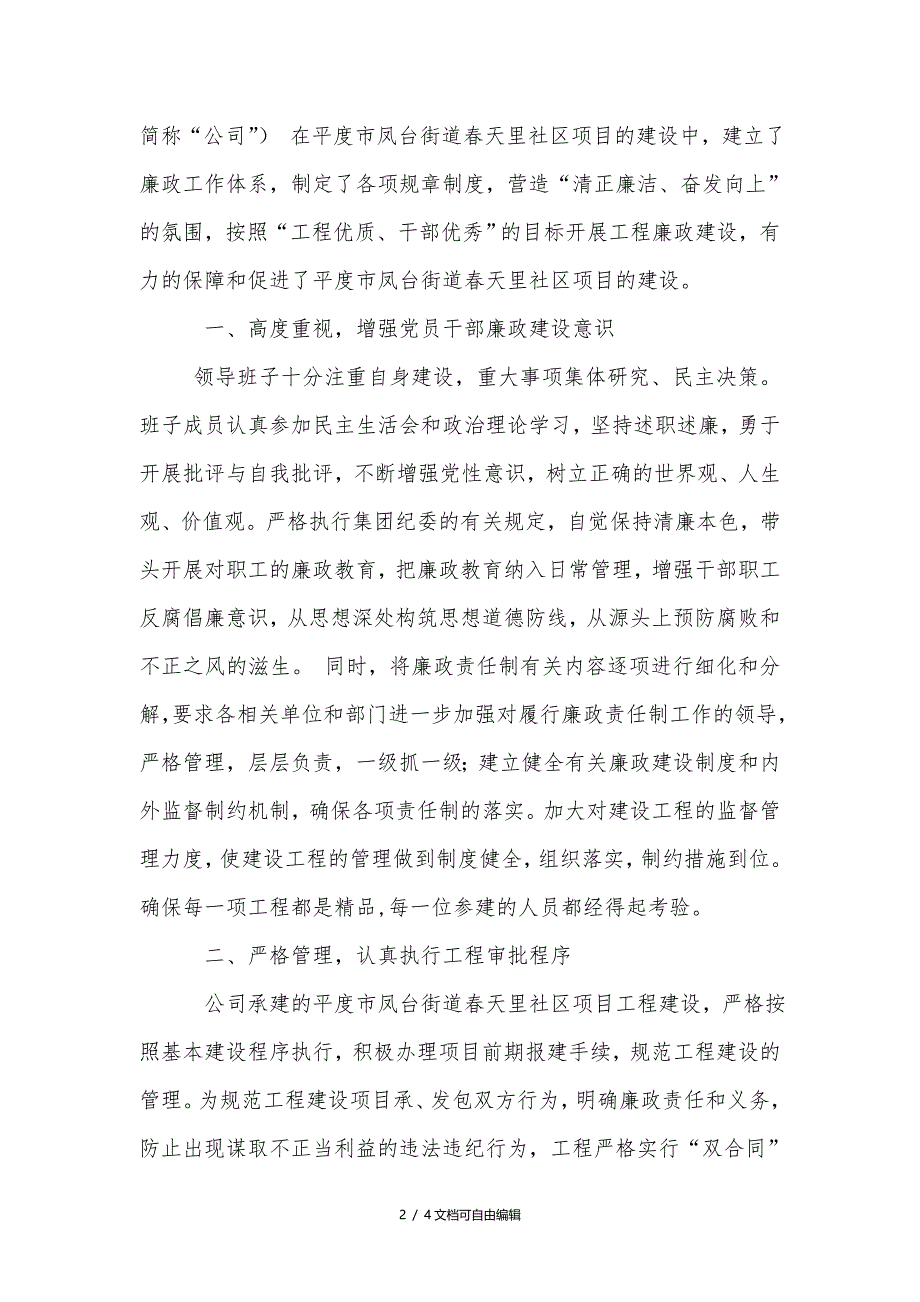 简称“公司”） 在平度市凤台街道春天里社区项目的建设中，建立了
廉政工作体系，制定了各项规章制度，营造“清正廉洁、奋发向上”
的氛围，按照“工程优质、干部优秀”的目标开展工程廉政建设，有
力的保障和促进了平度市凤台街道春天里社区项目的建设。
一、高度重视，增强党员干部廉政建设意识
领导班子十分注重自身建设，重大事项集体研究、民主决策。
班子成员认真参加民主生活会和政治理论学习，坚持述职述廉，勇于
开展批评与自我批评，不断增强党性意识，树立正确的世界观、人生
观、价值观。严格执行集团纪委的有关规定，自觉保持清廉本色，带
头开展对职工的廉政教育，把廉政教育纳入日常管理，增强干部职工
反腐倡廉意识，从思想深处构筑思想道德防线，从源头上预防腐败和
不正之风的滋生。 同时，将廉政责任制有关内容逐项进行细化和分
解,要求各相关单位和部门进一步加强对履行廉政责任制工作的领导，
严格管理，层层负责，一级抓一级；建立健全有关廉政建设制度和内
外监督制约机制，确保各项责任制的落实。加大对建设工程的监督管
理力度，使建设工程的管理做到制度健全，组织落实，制约措施到位。
确保每一项工程都是精品,每一位参建的人员都经得起考验。
二、严格管理，认真执行工程审批程序
公司承建的平度市凤台街道春天里社区项目工程建设，严格按
照基本建设程序执行，积极办理项目前期报建手续，规范工程建设的
管理。为规范工程建设项目承、发包双方行为，明确廉政责任和义务，
防止出现谋取不正当利益的违法违纪行为，工程严格实行“双合同”
2 / 4文档可自由编辑